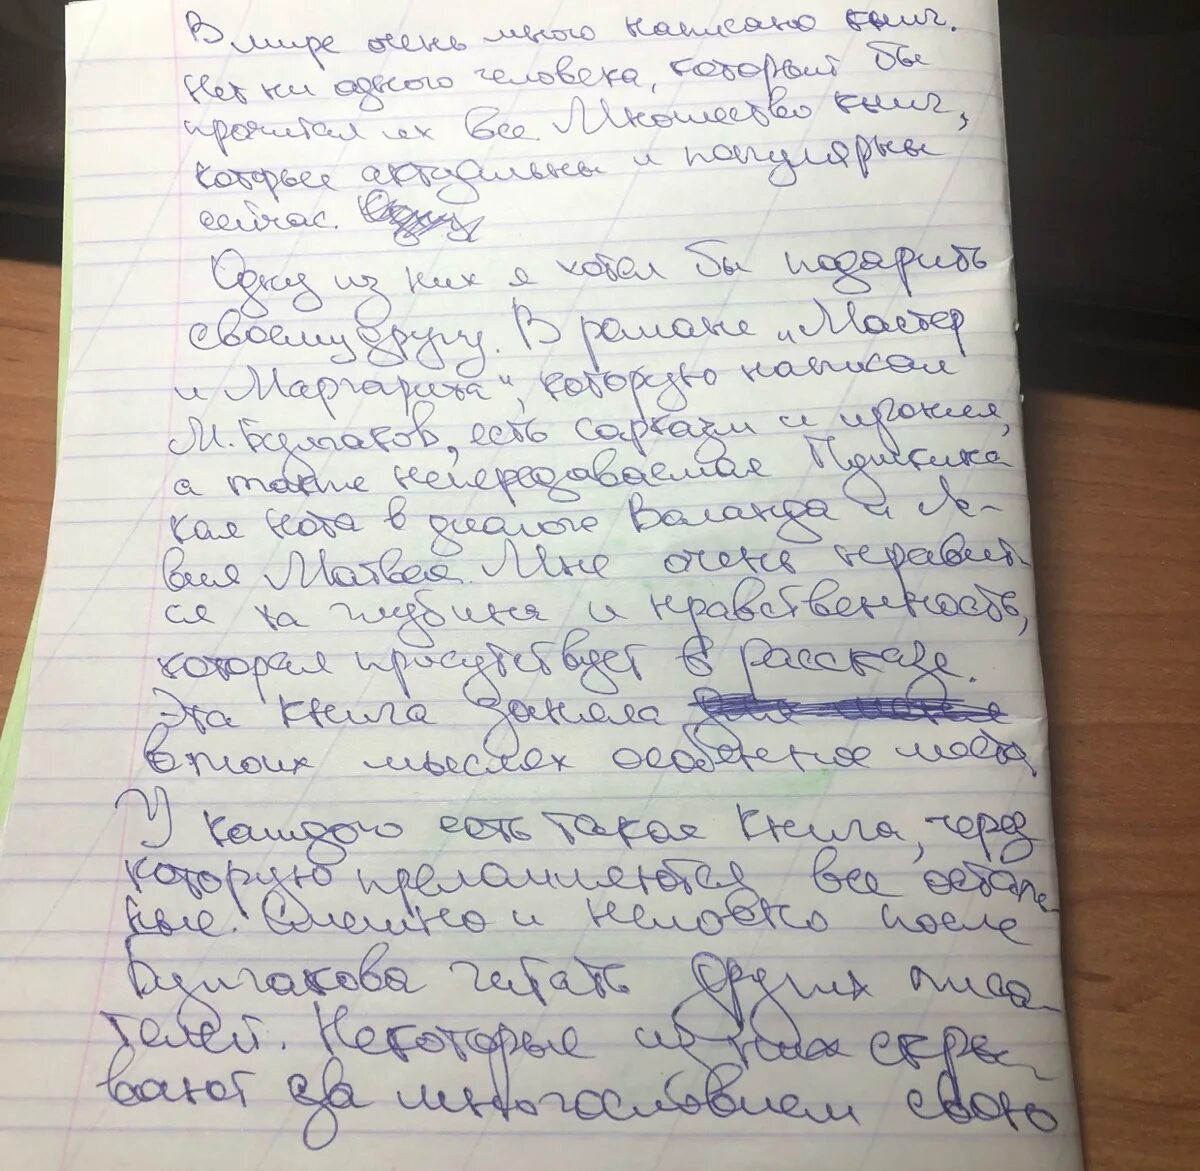 В мире очень много написано книг.
Нет ни одного человека, который бы
прочитал их все. Множество книг,
которые актуальны и популярны
сейчас.
Одну из них я хотел бы подарить
своему другу. В романе „Мастер
и Маргарита“, которую написал
М. Булгаков, есть сарказм и ирония,
а также непередаваемая
кая нота в диалоге Воланда и Ле-
вия Матвея. Мне очень нравит-
ся та глубина и нравственность,
которая присутствует в рассказе.
Эта книга заняла
в моих мыслях особенное место.
У каждого есть такая книга, через
которую преломляются все осталь-
ные. Смешно и неловко после
Булгакова читать других писа-
телей. Некоторые из них скры-
вают за многословием свою